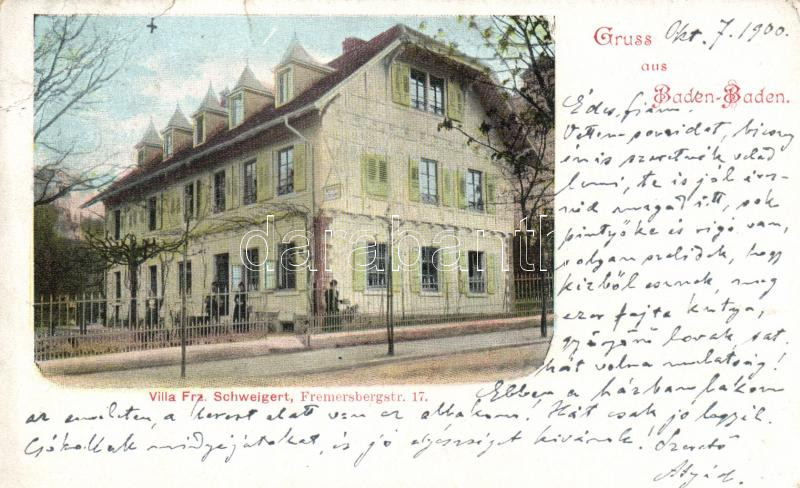 Gruss
aus
Baden-Baden.
Okt. 7. 1900.
Édes fiam!
Vettem soraidat, bizony
én is szeretnék veled
lenni, te is jól érez-
néd magad itt, sok
pintyőke és rigó van,
olyan szelidek, hogy
kézből esznek, meg
ezer fajta kutya,
gyönyörű lovak, sat.
hát volna mulatság!
Ebben a házban lakom
az emeleten, a kereszt alatt van az ablakom! Hát csak jó legyél.
Csókollak mindnyájatokat, és jó egészséget kívánok! Szerető
Atyád.
Villa Frz. Schweigert, Fremersbergstr. 17.
darabanth.com